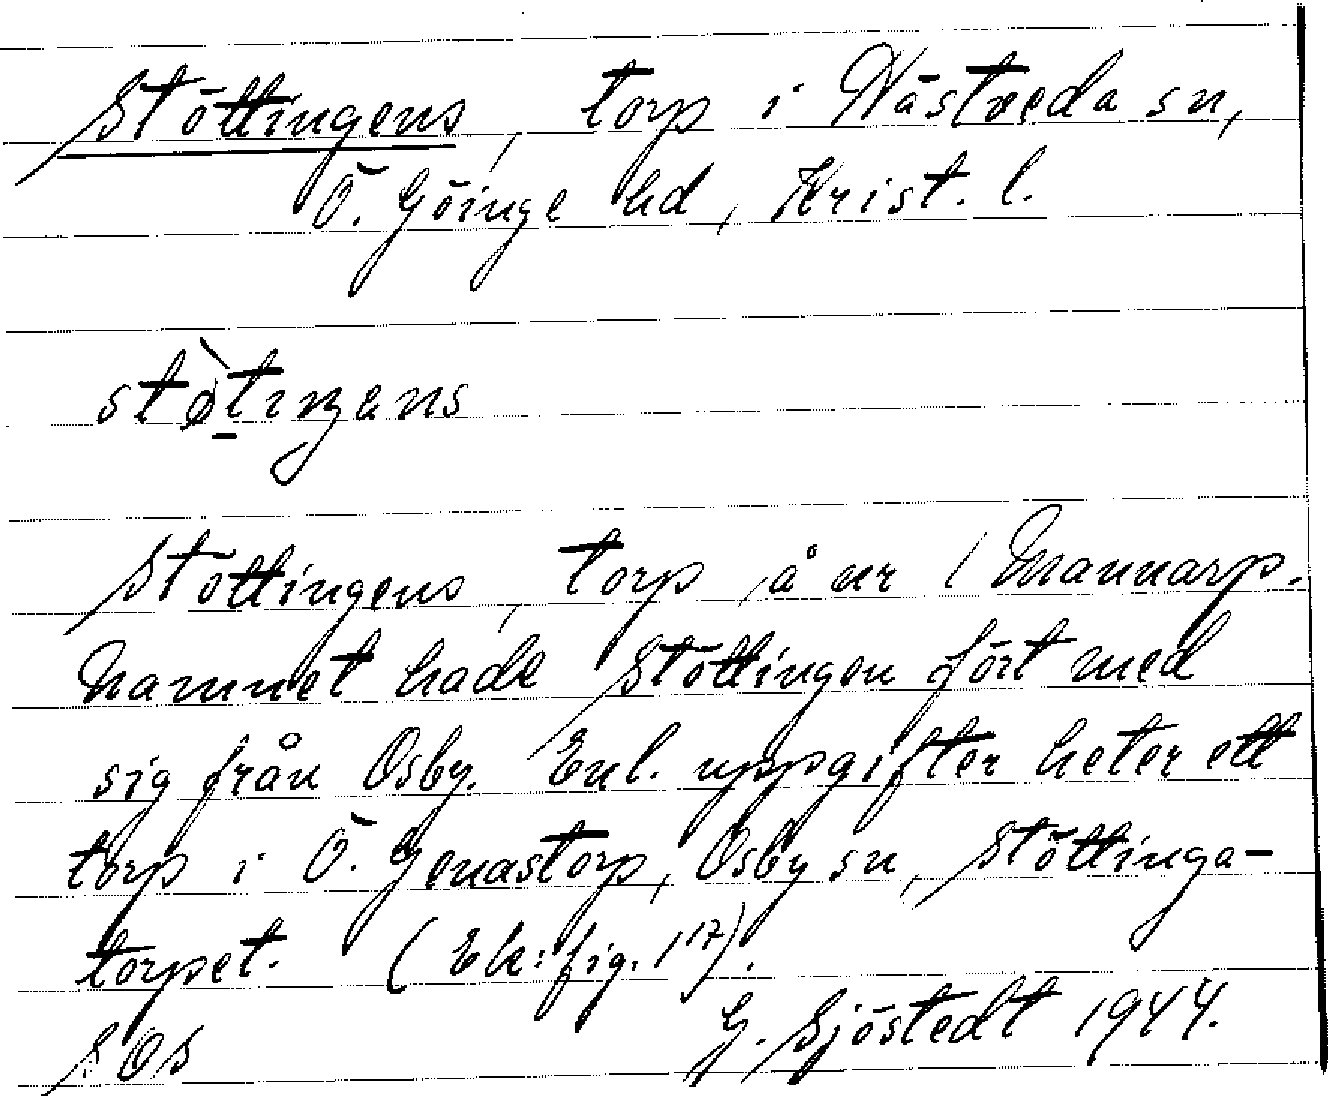 Stöttingens, torp i Nästveda sn,
Ö. Göinge hd, Krist. l.
stø̀tiŋens
Stöttingens, torp å nr 1 Mannarp.
Namnet hade Stöttingen fört med
sig från Osby. Enl. uppgifter heter ett
torp i Ö. Genastorp, Osby sn, Stöttinga-
torpet. (Ek: fig. 117).
SOS G. Sjöstedt 1944.